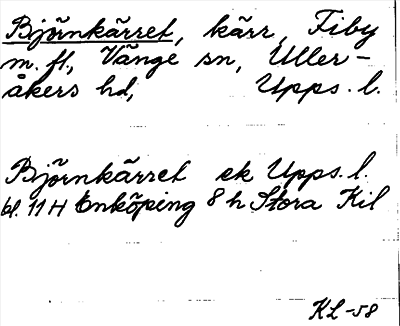 Björnkärret, kärr, Fiby
m. fl., Vänge sn, Uller-
åkers hd, Upps. l.
Björnkärret ek Upps. l.
bl. 11 H Enköping 8 h Stora Kil
KL-58